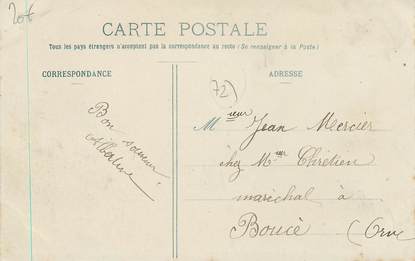 20f
CARTE POSTALE
Tous les pays étrangers n'acceptent pas la correspondance au recto (Se renseigner à la Poste)
CORRESPONDANCE
ADRESSE
72)
Bon
souvenir
Albertine
Msieur Jean Mercier
chez Mr Chrétien
maréchal à
Boucé (Orne